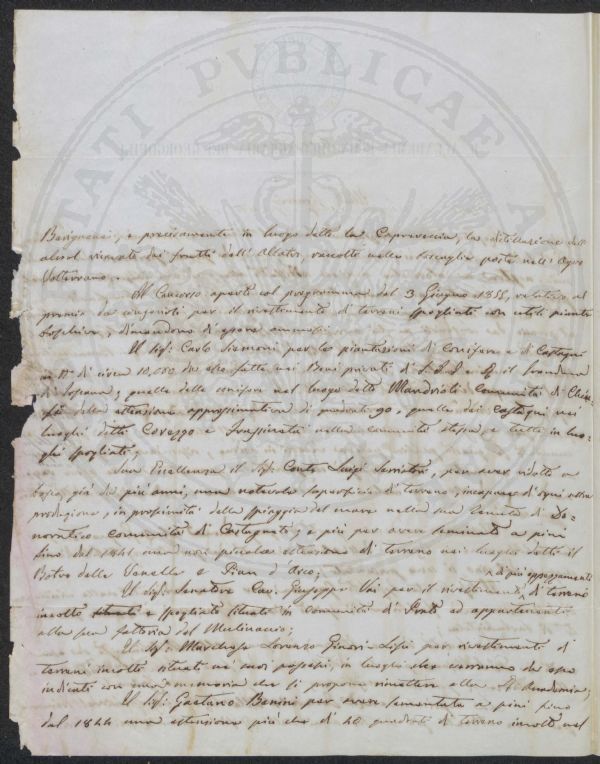 Barignani, e precisamente in luogo detto la Capraveccia, la distillazione dell'
alcool ricavato dai frutti dell' Albatro, raccolti nelle boscaglie poste nell' Agro
Volterrano.
Al Concorso aperto col programma del 3 Giugno 1855, relativo al
premio da conferirsi per il rivestimento di terreni spogliati con utili piante
boschive, dimandono di essere ammessi
Il Sig: Carlo Siemoni per le piantazioni di Conifere e di Castagni
in N° di circa 10,000 da esso fatte nei Beni privati di S. A. I. e R. il Granduca
di Toscana; quella delle conifere nel luogo detto Mandrioli Comunità di
della estensione approssimativa di quadrati 90, quella dei Castagni nei
luoghi detti Corezzo e nella comunità stessa e tutte in luo-
ghi spogliati;
Sua Eccellenza il Sig: Conte Luigi Serristori, per aver ridotto a
bosco, già da più anni, una notevole superficie di terreno, incapace d'ogni altra
produzione, in prossimità della spiaggia del mare nella sua tenuta di Do-
noratico comunità di Castagneto; e più per avere seminato a pini
fino dal 1841 una non piccola estensione di terreno nei luoghi detti il
Botro delle Vanelle e Pian d'Arco;
Il Sig: Senatore Cav. Giuseppe Vai per il rivestimento di più appezzamenti di terreno
incolto e spogliato situato in comunità di Prato ed appartenenti
alla sua fattoria del Mulinaccio;
Il Sig: Marchese Lorenzo Ginori-Lisci per rivestimento di
terreni incolti situati nei suoi possessi, in luoghi che verranno da esso
indicati con una memoria che si propone rimettere alla R. Accademia;
Il Sig: Gaetano Benini per avere sementata a pini fino
dal 1844 una estensione più che di 40 quadrati di terreno incolto nel